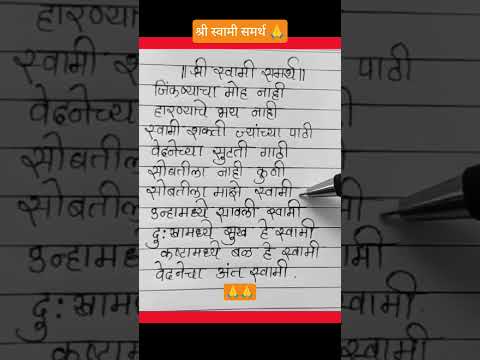 श्री स्वामी समर्थ 🙏
॥ श्री स्वामी समर्थ॥
जिंकण्याचा मोह नाही
हारण्याचे भय नाही
स्वामी शक्ती ज्यांच्या पाठी
वेदनेच्या सुटती गाठी
सोबतीला नाही कुणी
सोबतीला माझे स्वामी
उन्हामध्ये सावली स्वामी
दुःखामध्ये सुख हे स्वामी
कष्टामध्ये बळ हे स्वामी
वेदनेचा अंत स्वामी.
🙏🙏